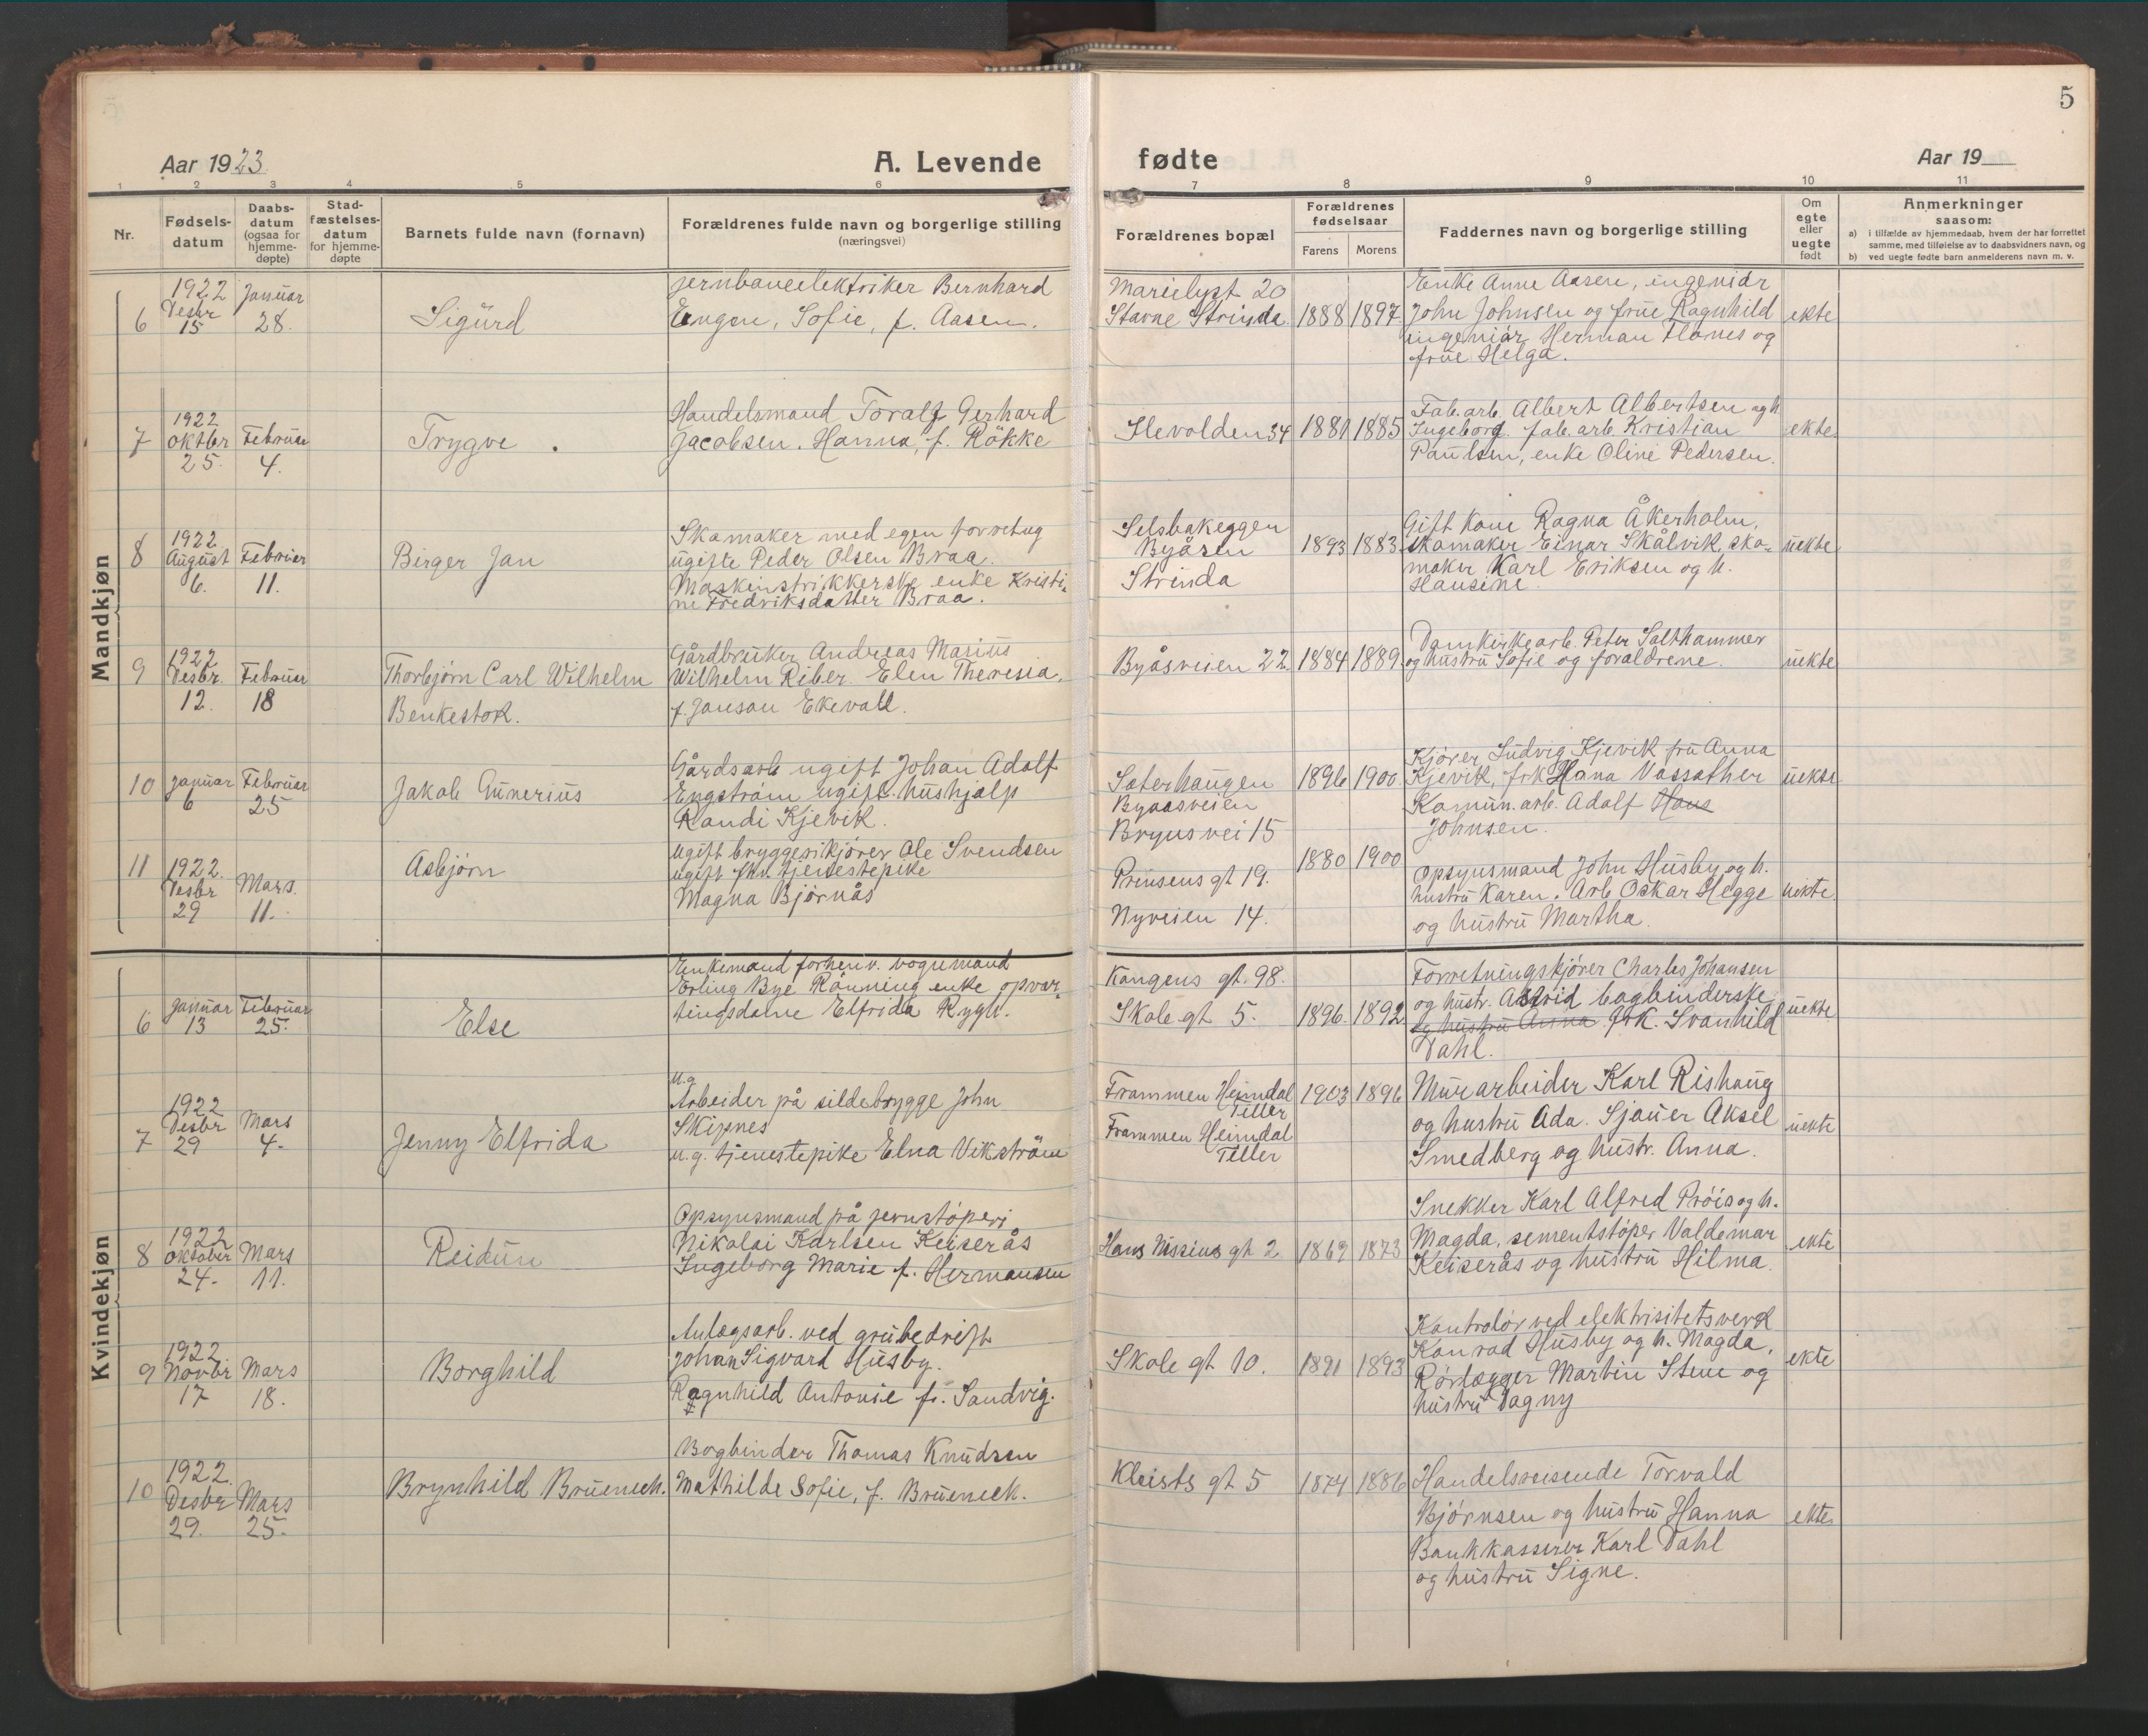 5
Aar 1923.
A. Levende
fødte
Aar 19
1 2 3 4 5 6 7 8 9 10 11
Nr.
Fødsels-
datum
Daabs-
datum
(ogsaa for
hjemme-
døpte)
Stad-
fæstelses-
datum
for hjemme-
døpte
Barnets fulde navn (fornavn)
Forældrenes fulde navn og borgerlige stilling
(næringsvei)
Forældrenes bopæl
Forældrenes
fødselsaar
Farens Morens
Faddernes navn og borgerlige stilling
Om
egte
eller
uegte
født
Anmerkninger
saasom:
a) i tilfælde av hjemmedaab, hvem der har forrettet
samme, med tilføielse av to daabsvidners navn, og
b) ved uegte fødte barn anmelderens navn m. v.
Mandkjøn
6
1922
Desbr
15
Januar
28.
Sigurd
Jernbaneelektriker Bernhard
Engen, Sofie, f. Aasen.
Marielyst 20
Stavne Strinda
1888 1897
Enke Anne Aasen, ingeniør
John Johnsen og frue Ragnhild
ingeniør Herman Hanes og
frue Helga.
ekte
7
1922
Oktbr
25.
Februar
4.
Trygve.
Handelsmand Toralf Gerhard
Jacobsen. Hanna, f. Rökke
Ilevolden 34
1881 1885
Fab. arb. Albert Albertsen og h.
Ingeborg. fab. arb. Kristian
Paulsen, enke Oline Pedersen.
ekte
8
1922
August
6.
Februar
11.
Birger Jan
Skomaker med egen forretng
ugifte Peder Olsen Braa.
Maskinstrikkerske enke Kristi-
ne Fredriksdatter Braa.
Selsbakeggen
Byåsen
Strinda
1893 1883
Gift kone Ragna Åkerholm,
skomaker Einar Skålvik, sko-
maker Karl Eriksen og h.
Hansine.
uekte
9
1922
Desbr.
12.
Februar
18
Thorbjørn Carl Wilhelm
Benkestok.
Gårdbruker Andreas Marius
Wilhelm Riber Elen Theresia,
f. Janson Ekevall.
Byåsveien 22
1884 1889
Domkirkearb. Peter Salthammer
og hustru Sofie og foraldrene.
uekte
10
Januar
6
Februar
25
Jakob Gunerius
Gårdsarb ugift Johan Adolf
Engström ugift hushjalp
Randi Kjevik.
Sæterhaugen
Byaasveien
Bryns vei 15
1896 1900
Kjører Ludvig Kjevik fru Anna
Kjevik, frk Hana Vassather
Komun. arb. Adolf Hans
Johnsen.
uekte
11
1922.
Desbr
29
Mars.
11.
Asbjørn
ugift bryggerikjører Ole Svendsen
ugift fhv. tjenestepike
Magna Bjørnås
Prinsens gt 19.
Nyveien 14.
1880 1900
Opsynsmand John Husby og h.
hustru Karen. Arb Oskar Hegge
og hustru Martha.
uekte
Kvindekjøn
6
Januar
13
Februar
25.
Else
Enkemand forhenv. vognmand
Erling Bye Rönning enke opvar-
tingsdame Elfrida Rygh.
Kongens gt. 98.
Skole gt 5.
1896. 1892
Forretningskjører Charles Johansen
og hustr. Astrid bogbinderske
og hustru Anna frk. Svanhild
Dahl.
uekte
7
1922
Desbr
29
Mars
4.
Jenny Elfrida
u.g.
Arbeider på sildebrygge John
Skipnes
u. g. tjenestepike Elna Vikström
Frammen Heimdal
Tiller
Frammen Heimdal
Tiller
1903 1896
Murarbeider Karl Rishaug
og hustru Ada. Sjauer Aksel
Smedberg og hustr. Anna.
uekte
8
1922
Oktober
24.
Mars
11.
Reidun
Opsynsmand på jernstöperi
Nikolai Karlsen Keiserås
Ingeborg Marie f. Hermansen
Hans Nissius gt 2
1869 1873
Snekker Karl Alfred Pröis og h.
Magda, sementstöper Valdemar
Keiserås og hustru Hilma.
ekte
9
1922.
Novbr
17
Mars
18.
Borghild
Anlægsarb. ved grubedrift
Johan Sigvard Husby.
Ragnhild Antonie f. Sandvig.
Skole gt 10.
1891 1893
Kontrolör ved elektrisitetsverk
Konrad Husby og h. Magda,
Rörlægger Martin Stene og
hustru Dagny
ekte
10
1922.
Desbr
29.
Mars
25.
Brynhild Brueneck.
Bogbinder Thomas Knudsen
Mathilde Sofie, f. Brueneck.
Kleists gt 5
1874 1886
Handelsreisende Torvald
Bjørnsen og hustru Hanna
Bankkasserer Karl Dahl
og hustru Signe.
ekte